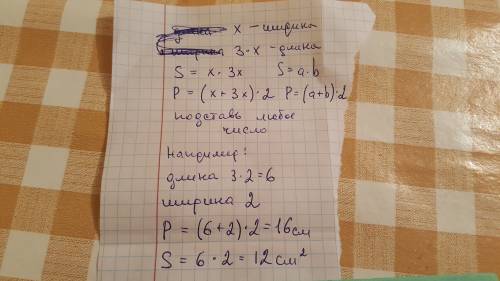 x - ширина
3·x - длина
S = x · 3x S = a·b
P = (x + 3x)·2 P = (a+b)·2
подставь любое
число
Например:
длина 3·2=6
ширина 2
P = (6+2)·2 = 16см
S = 6 · 2 = 12 см²